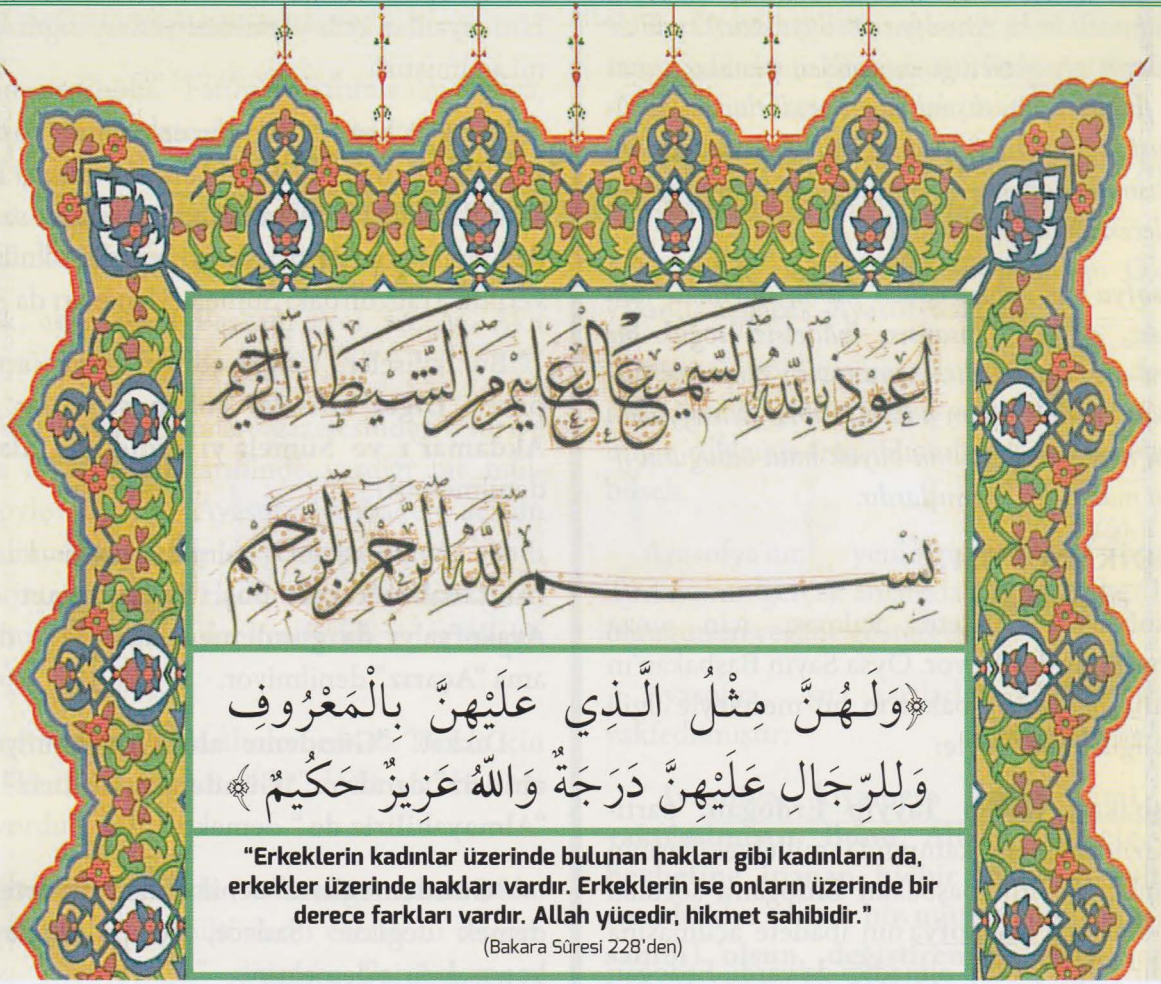 أعوذ بالله السميع العليم من الشيطان الرجيم
بسم الله الرحمن الرحيم
﴿وَلَهُنَّ مِثْلُ الَّذِي عَلَيْهِنَّ بِالْمَعْرُوفِ
وَلِلرِّجَالِ عَلَيْهِنَّ دَرَجَةٌ وَاللّٰهُ عَزِيزٌ حَكِيمٌ﴾
“Erkeklerin kadınlar üzerinde bulunan hakları gibi kadınların da,
erkekler üzerinde hakları vardır. Erkeklerin ise onların üzerinde bir
derece farkları vardır. Allah yücedir, hikmet sahibidir.”
(Bakara Sûresi 228’den)